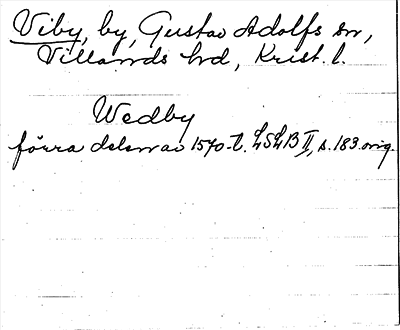 Viby, by, Gustav Adolfs sn,
Villands hd, Krist. l.
Wedby
förra delen av 1570-t. LSLB II, s. 183 orig.